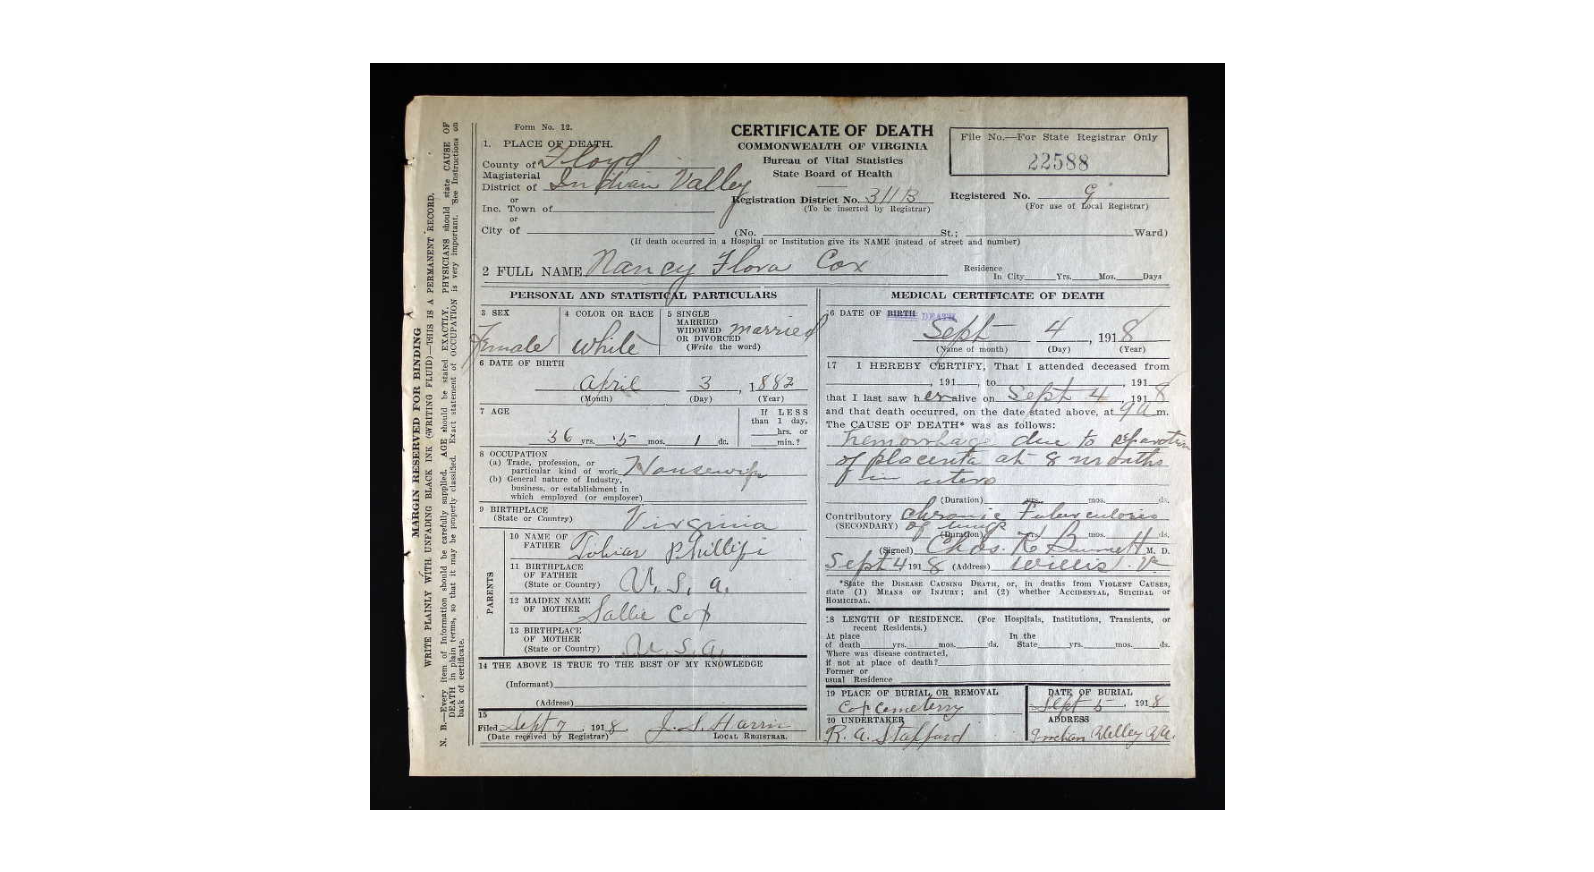 Form No. 12.
CERTIFICATE OF DEATH
COMMONWEALTH OF VIRGINIA
Bureau of Vital Statistics
State Board of Health
File No.—For State Registrar Only
22588
1. PLACE OF DEATH.
County of Floyd
Magisterial District of Indian Valley
or
Inc. Town of
or
City of
Registration District No. 311B
(To be inserted by Registrar)
Registered No. 9
(For use of Local Registrar)
(No. St.; Ward)
(If death occurred in a Hospital or Institution give its NAME instead of street and number)
2 FULL NAME Nancy Flora Cox
Residence In City Yrs. Mos. Days
PERSONAL AND STATISTICAL PARTICULARS
3 SEX
Female
4 COLOR OR RACE
White
5 SINGLE
MARRIED
WIDOWED
OR DIVORCED
(Write the word)
married
6 DATE OF BIRTH
April 3, 1882
(Month) (Day) (Year)
7 AGE
36 yrs. 5 mos. 1 ds.
If LESS
than 1 day,
hrs. or
min.?
8 OCCUPATION
(a) Trade, profession, or
particular kind of work Housewife
(b) General nature of Industry,
business, or establishment in
which employed (or employer)
9 BIRTHPLACE
(State or Country) Virginia
PARENTS
10 NAME OF
FATHER Tobias Phillipi
11 BIRTHPLACE
OF FATHER
(State or Country) U.S.a.
12 MAIDEN NAME
OF MOTHER Sallie Cox
13 BIRTHPLACE
OF MOTHER
(State or Country) U.S.a.
14 THE ABOVE IS TRUE TO THE BEST OF MY KNOWLEDGE
(Informant)
(Address)
15
Filed Sept 7 1918 J. S. Harris
(Date received by Registrar) LOCAL REGISTRAR.
MEDICAL CERTIFICATE OF DEATH
16 DATE OF BIRTH DEATH
Sept 4, 1918
(Name of month) (Day) (Year)
17 I HEREBY CERTIFY, That I attended deceased from
, 191 , to , 1918
that I last saw her alive on Sept 4, 1918
and that death occurred, on the date stated above, at 9 a m.
The CAUSE OF DEATH* was as follows:
hemorrhage due to separation
of placenta at 8 months
in utero
(Duration) yrs. mos. ds.
Contributory Chronic Tuberculosis
(SECONDARY) of lungs
(Duration) yrs. mos. ds.
(Signed) Chas. K Burnett M. D.
Sept 4 1918 (Address) Willis Va
*State the DISEASE CAUSING DEATH, or, in deaths from VIOLENT CAUSES,
state (1) MEANS OF INJURY; and (2) whether ACCIDENTAL, SUICIDAL or
HOMICIDAL.
18 LENGTH OF RESIDENCE. (For Hospitals, Institutions, Transients, or
recent Residents.)
At place In the
of death yrs. mos. ds. State yrs. mos. ds.
Where was disease contracted,
if not at place of death?
Former or
usual Residence
19 PLACE OF BURIAL OR REMOVAL
Cox Cemeterry
DATE OF BURIAL
Sept 5 1918
20 UNDERTAKER
R. a. Stafford
ADDRESS
Indian Valley Va.
MARGIN RESERVED FOR BINDING
WRITE PLAINLY WITH UNFADING BLACK INK (WRITING FLUID)—THIS IS A PERMANENT RECORD.
N. B.—Every item of Information should be carefully supplied. AGE should be stated EXACTLY. PHYSICIANS should state CAUSE OF
DEATH in plain terms, so that it may be properly classified. Exact statement of OCCUPATION is very important. See Instructions on
back of certificate.